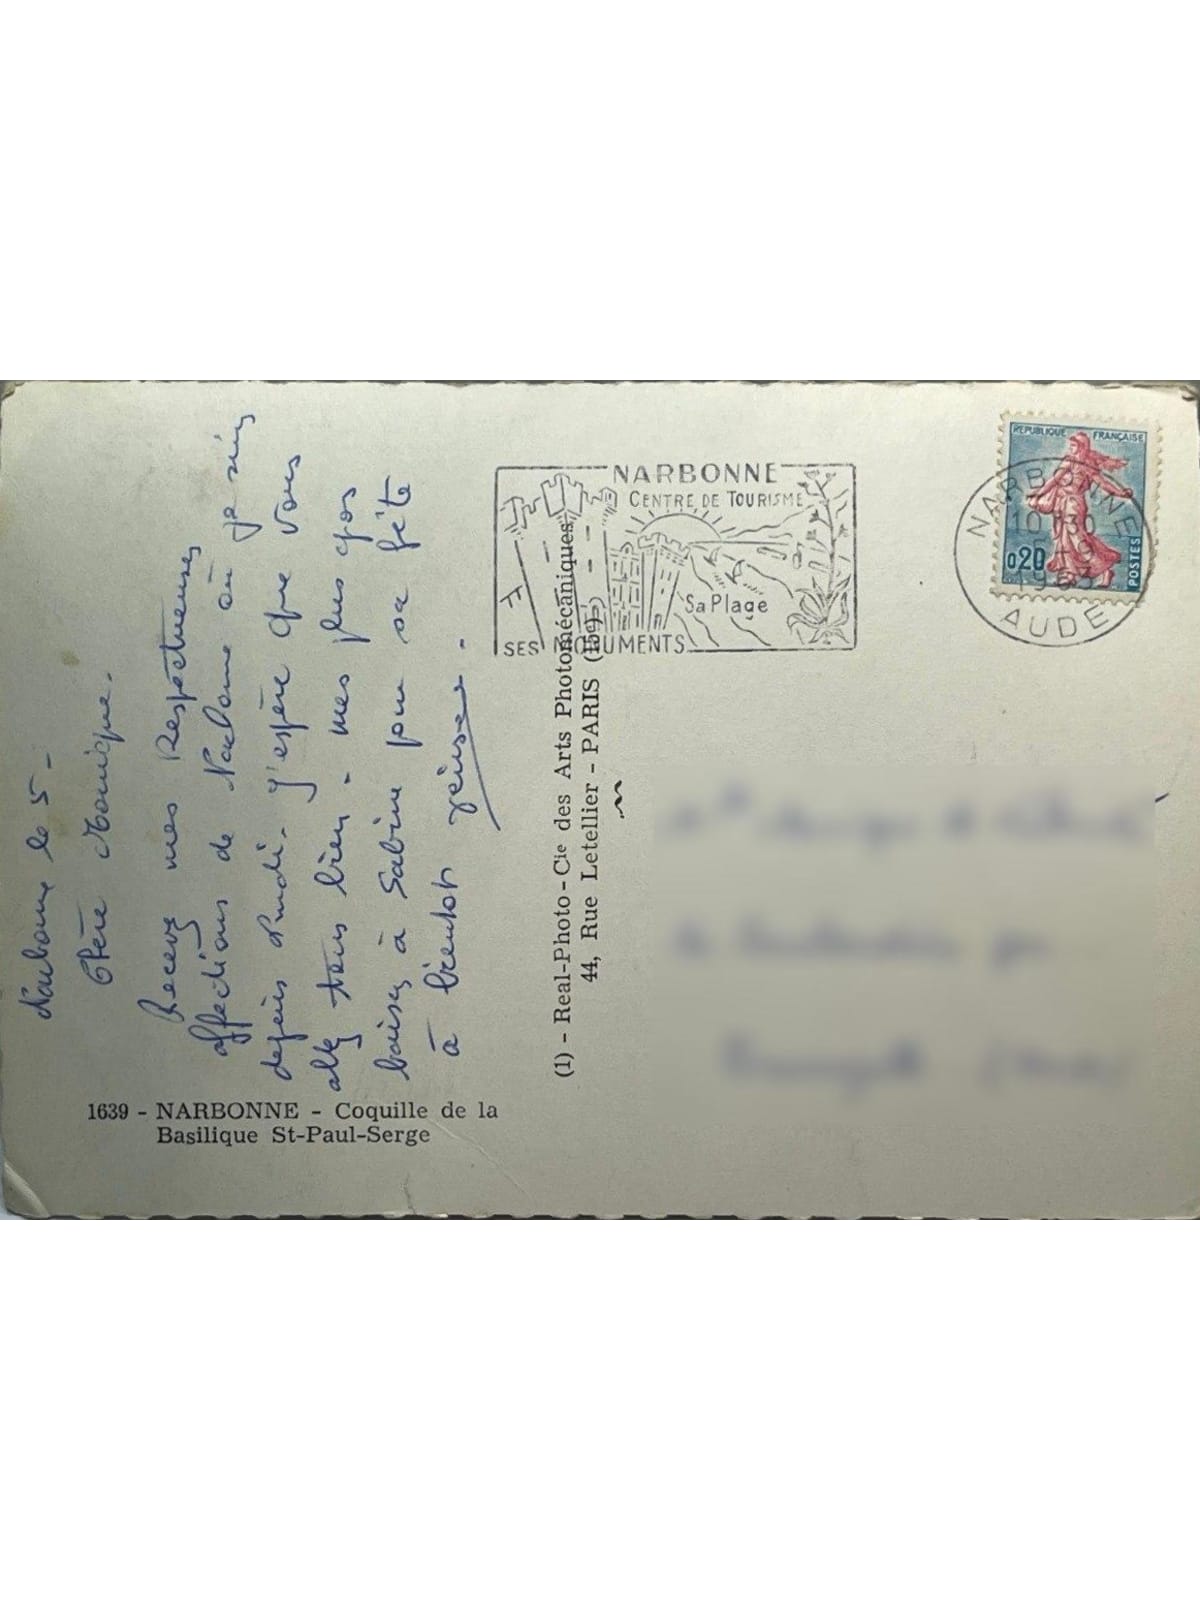 Narbonne le 5 -
Chère Monique.
Recevez mes Respectueuses
affections de Narbonne où je suis
depuis Lundi. J'espère que vous
allez tous bien - mes plus gros
baisers à Sabine pour sa fête
à bientot
1639 - NARBONNE - Coquille de la
Basilique St-Paul-Serge
(1) - Real-Photo - Cie des Arts Photomécaniques
44, Rue Letellier - PARIS (15e)
NARBONNE
CENTRE DE TOURISME
Sa Plage
SES MONUMENTS
REPUBLIQUE FRANÇAISE
0,20
POSTES
NARBONNE
AUDE